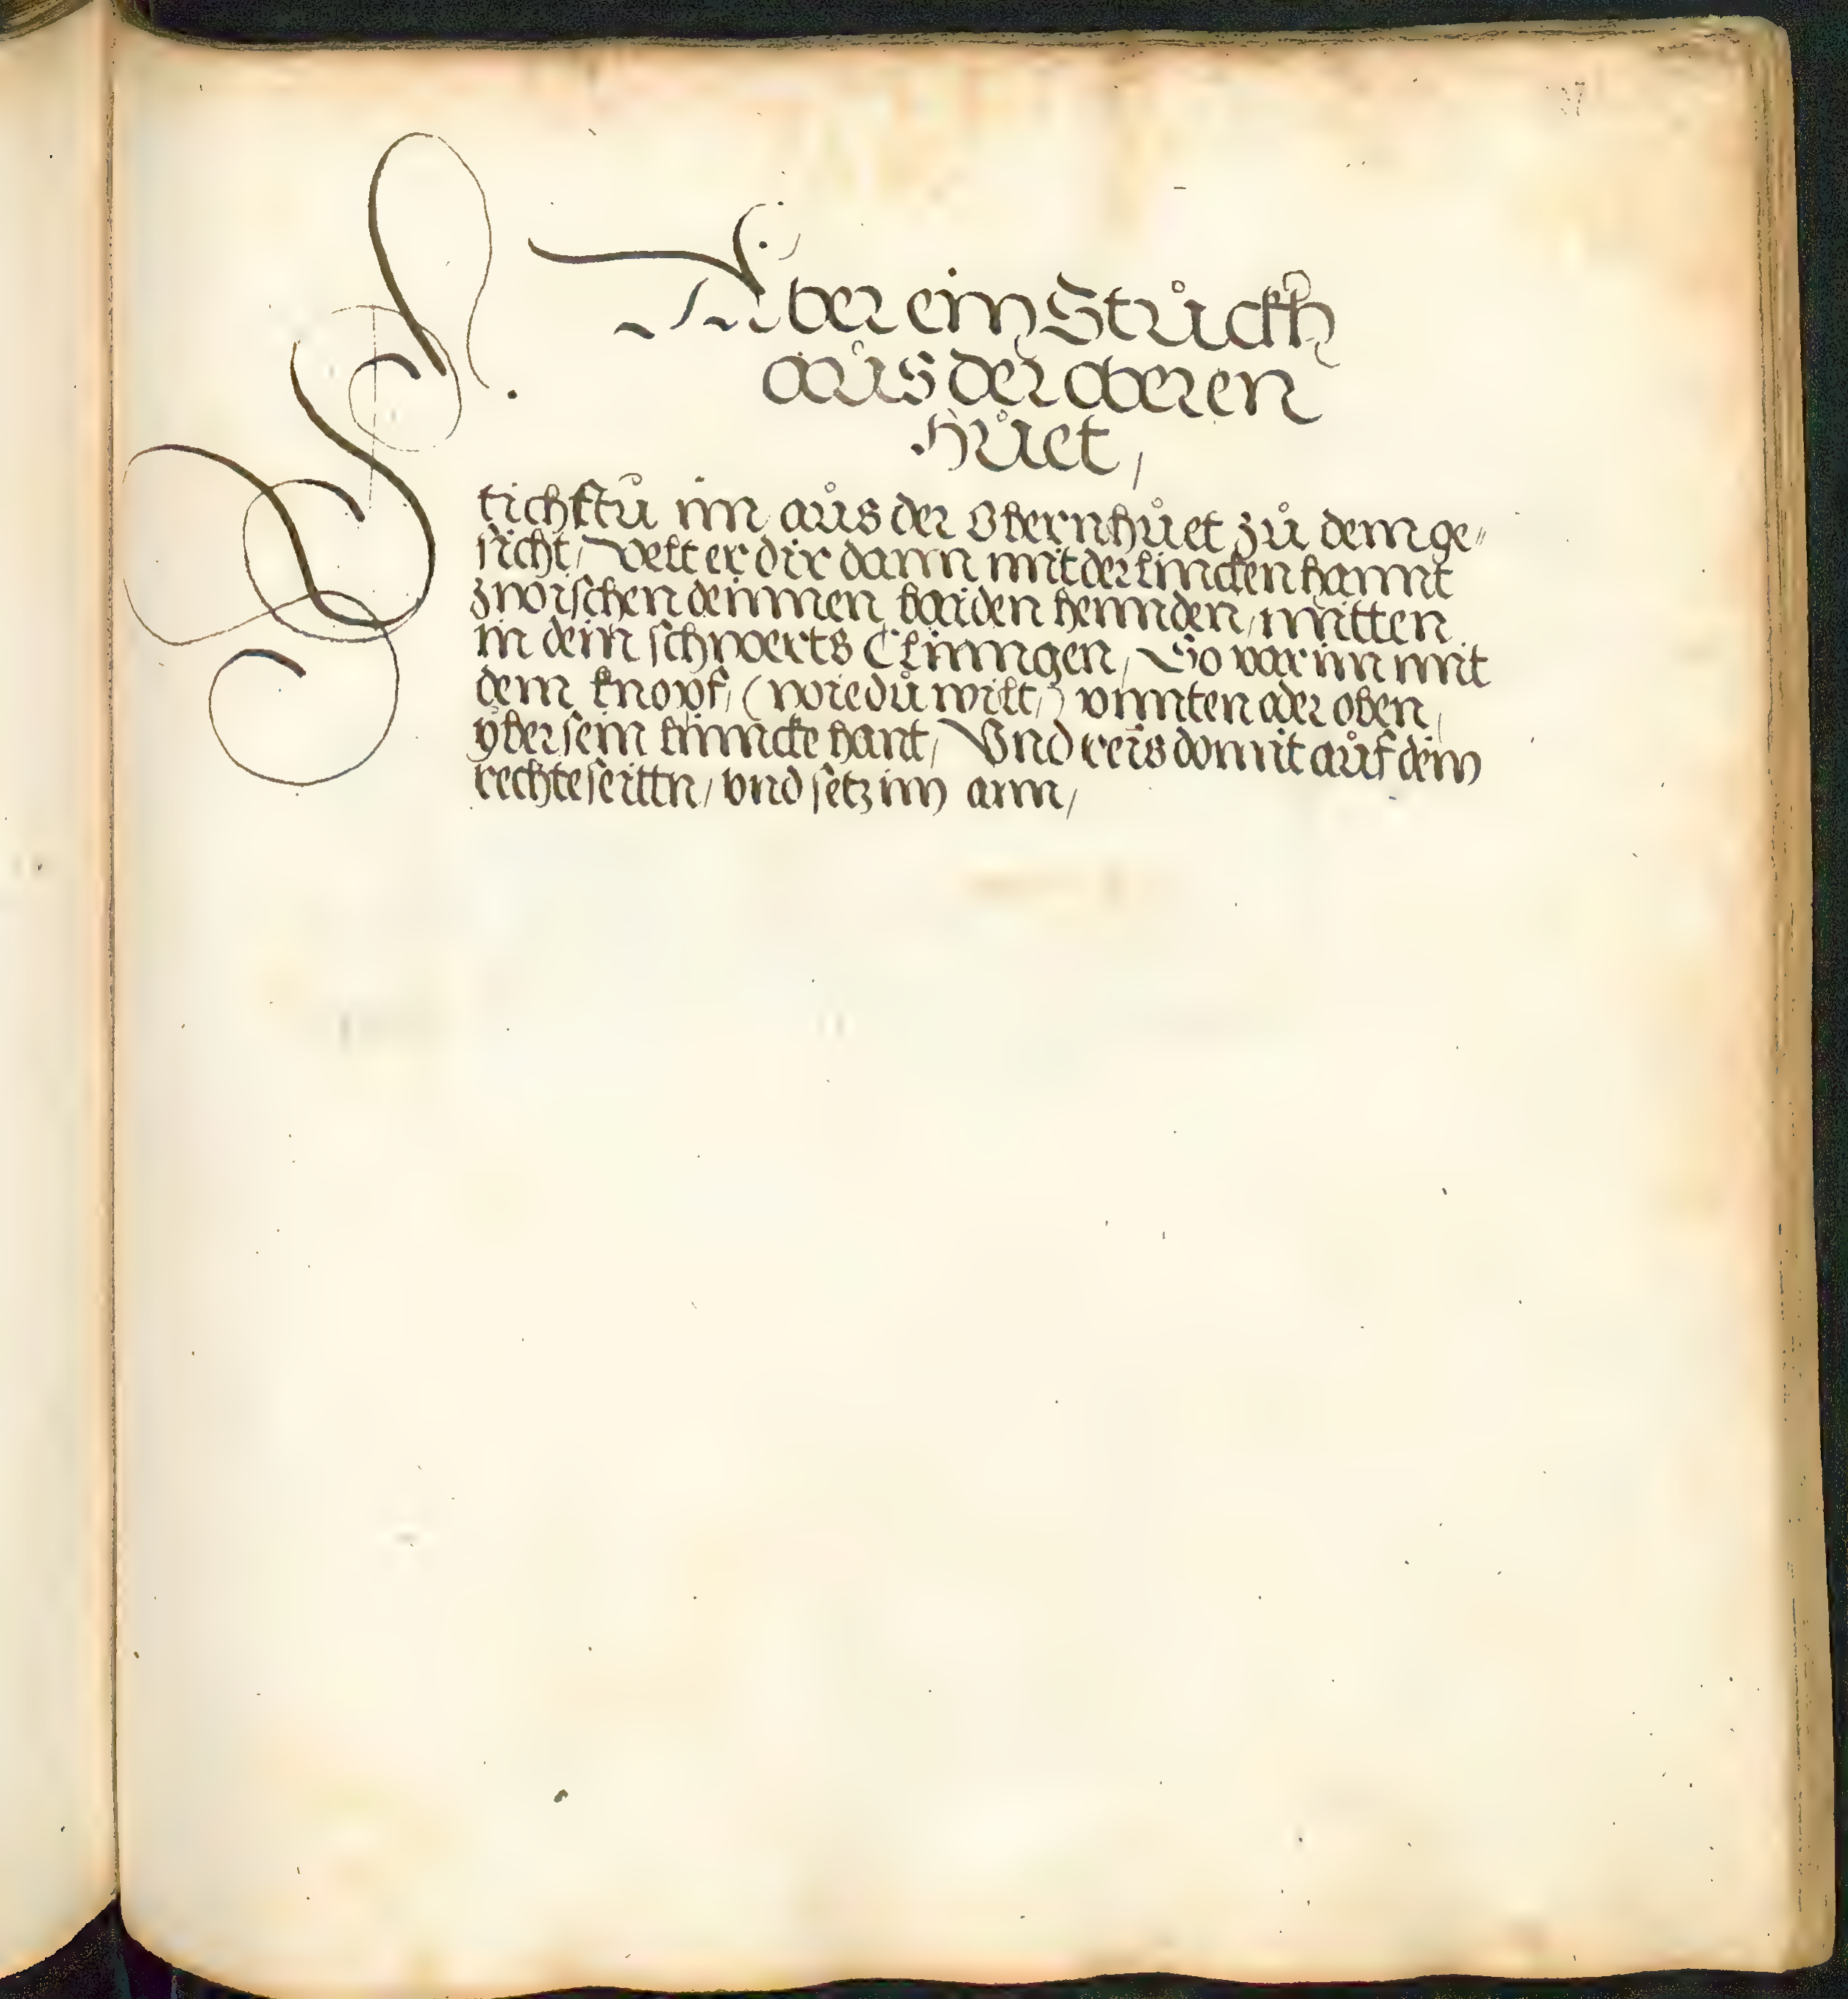 Aber ein Stůckh
aůs der oberen
hůet,
Stichstů im aůs der Obernhůet zů dem ge„
sicht, velt er dir dann mit der linncken hannt
zwischen deinnen baiden hennden, mitten
in dein schwerts Clinngen, So var im mit
dem knopf, (wie dů wilt,) vnnten oder oben,
ÿber sein linncke hant, Vnd reis domit aůf dein
rechte seittn, vnd setz im an,